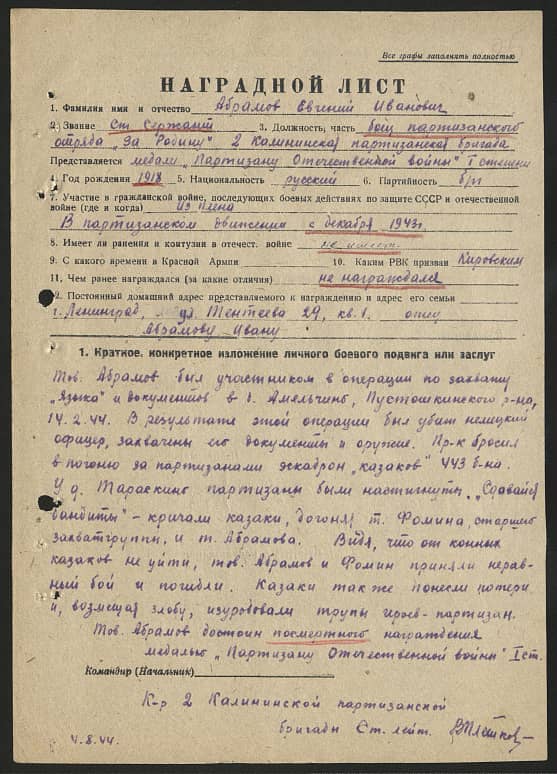 Все графы заполнять полностью
НАГРАДНОЙ ЛИСТ
1. Фамилия имя и отчество Абрамов Евгений Иванович
2. Звание Ст. Сержант 3. Должность, часть боец партизанского
отряда „За Родину" 2 Калининская партизанская бригада
Представляется медали „Партизану Отечественной войны" I степени
4. Год рождения 1918 5. Национальность русский 6. Партийность б/п
7. Участие в гражданской войне, последующих боевых действиях по защите СССР и отечественной
войне (где и когда) Из плена
В партизанском движении с декабря 1943г.
8. Имеет ли ранения и контузии в отечест. войне не имеет.
9. С какого времени в Красной Армии 10. Каким РВК призван Кировским
11. Чем ранее награждался (за какие отличия) не награждался
2. Постоянный домашний адрес представляемого к награждению и адрес его семьи
г. Ленинград, ул. Тентеева 29, кв. 1. отец
Абрамову Ивану
1. Краткое, конкретное изложение личного боевого подвига или заслуг
Тов. Абрамов был участником в операции по захвату
„Языка" и документов в д. Амельчино, Пустошкинского р-на,
14.2.44. В результате этой операции был убит немецкий
офицер, захвачены его документы и оружие. Пр-к бросил
в погоню за партизанами эскадрон „казаков" 443 б-на.
У д. Тараскино партизаны были настигнуты. „Сдавайся
бандиты" - кричали казаки, догоняя т. Фомина, старшего
захватгруппы, и т. Абрамова. Видя, что от конных
казаков не уйти, тов. Абрамов и Фомин приняли нерав-
ный бой и погибли. Казаки также понесли потери
и, возмещая злобу, изуродовали трупы героев-партизан.
Тов. Абрамов достоин посмертного награждения
медалью „Партизану Отечественной войны" I ст.
Командир (Начальник)
К-р 2 Калининской партизанской
бригады Ст. лейт.
4.8.44.